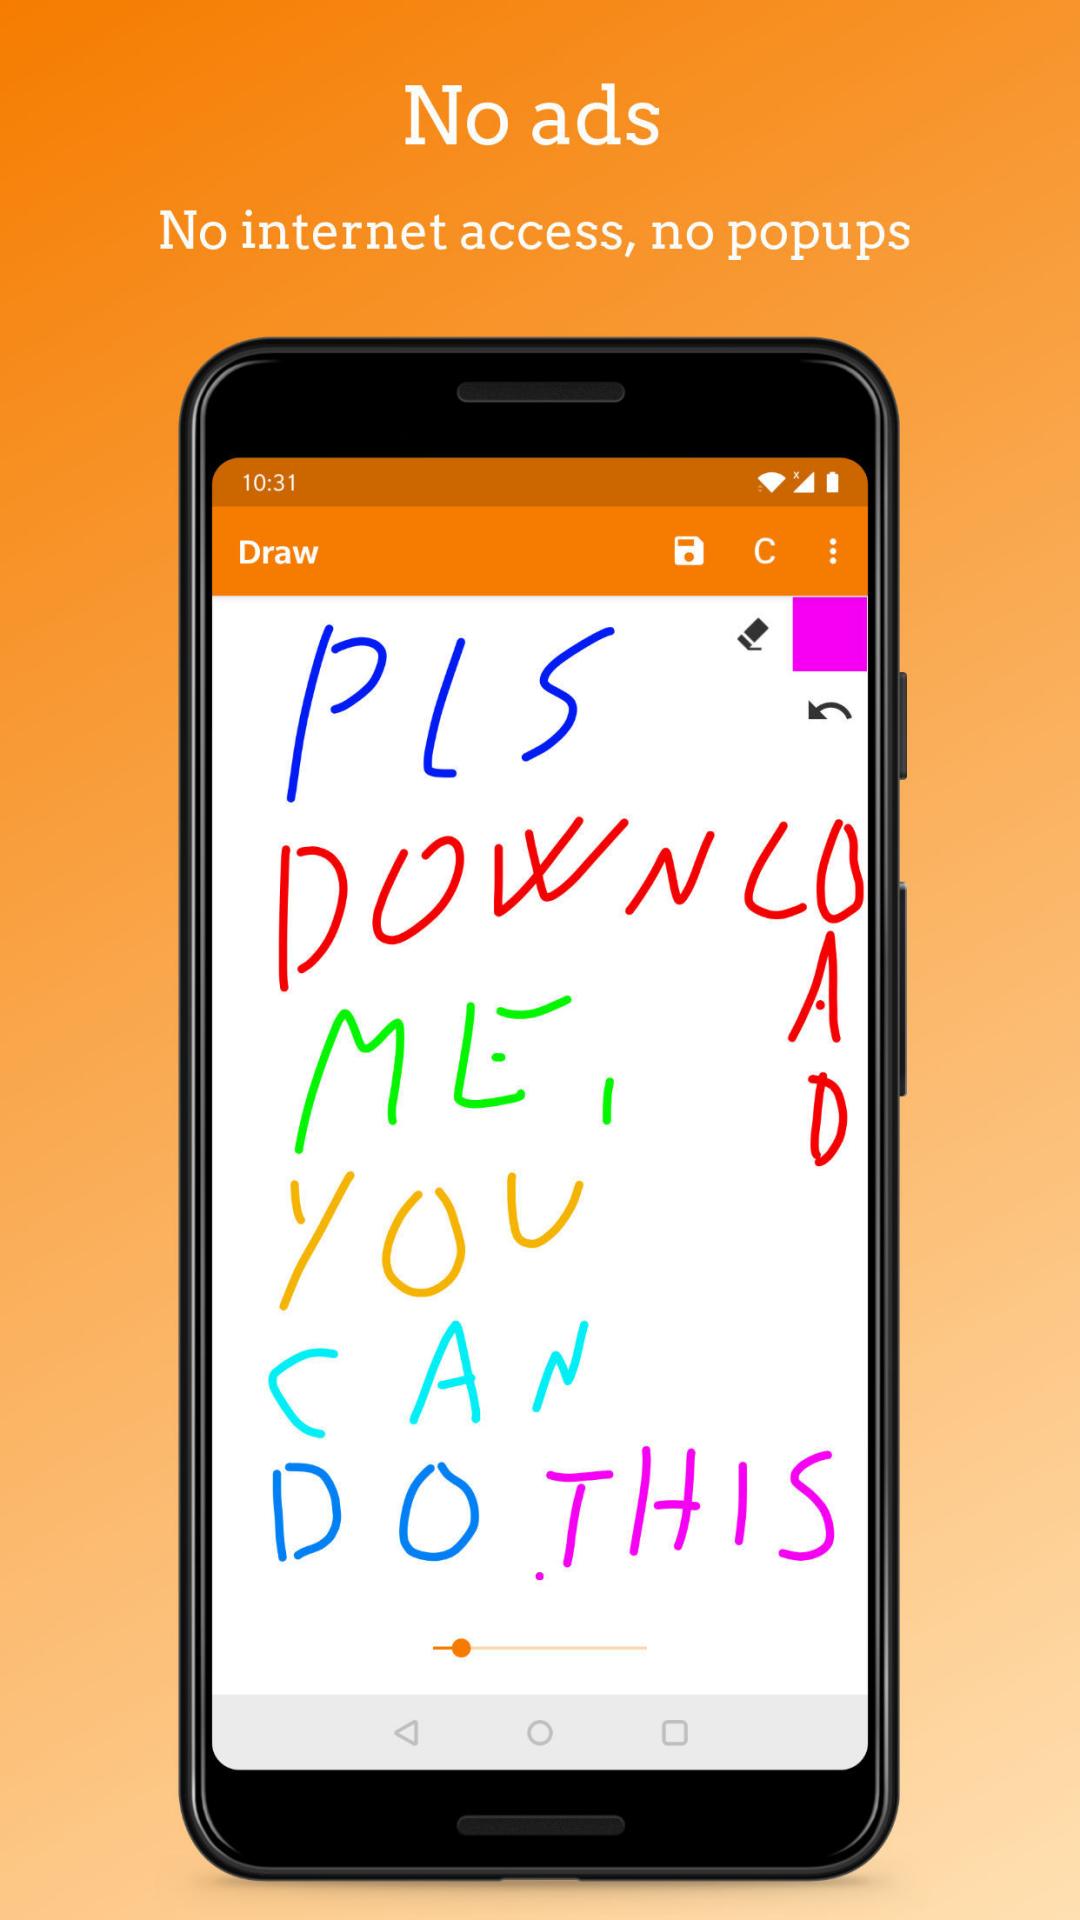 No ads
No internet access, no popups
10:31
Draw
C
PLS
DOWNLOAD
ME,
YOU
CAN
DO THIS